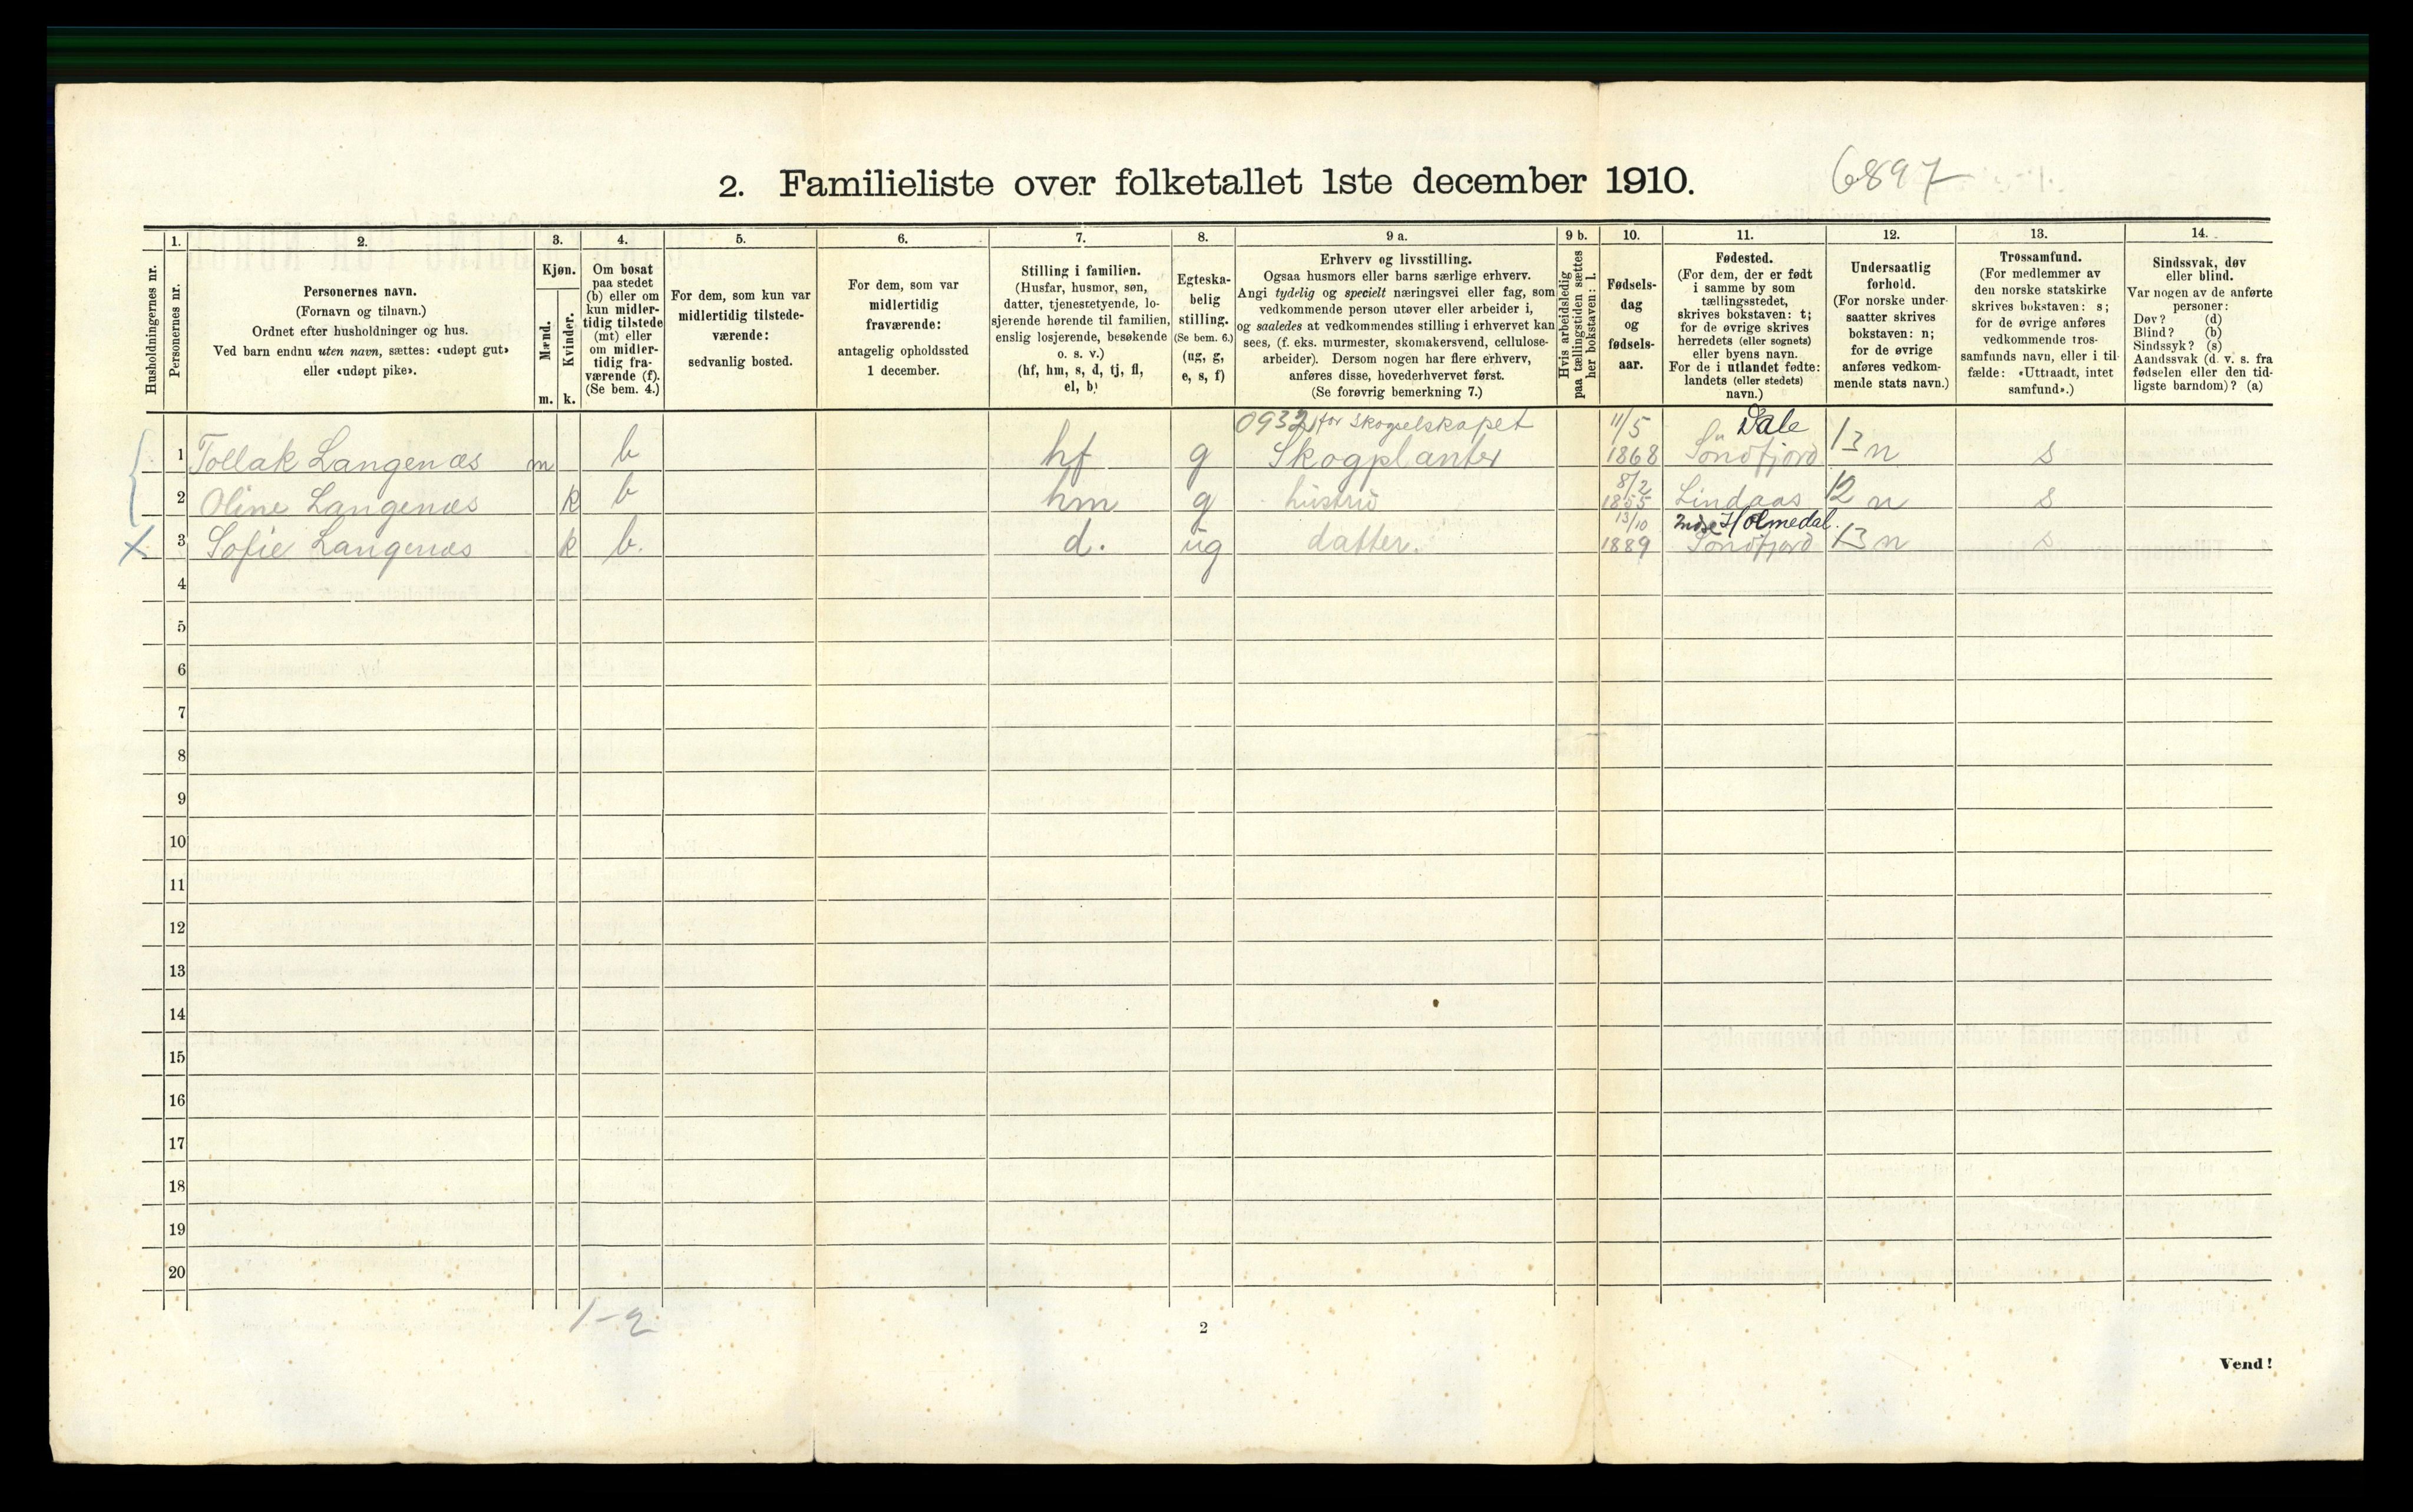 2. Familieliste over folketallet 1ste december 1910.
6897
Husholdningernes nr.
1.
Personernes nr.
2.
Personernes navn.
(Fornavn og tilnavn.)
Ordnet efter husholdninger og hus.
Ved barn endnu uten navn, sættes: «udøpt gut»
eller «udøpt pike».
3.
Kjøn.
Mænd.
Kvinder.
m.
k.
4.
Om bosat
paa stedet
(b) eller om
kun midler-
tidig tilstede
(mt) eller
om midler-
tidig fra-
værende (f).
(Se bem. 4.)
5.
For dem, som kun var
midlertidig tilstede-
værende:
sedvanlig bosted.
6.
For dem, som var
midlertidig
fraværende:
antagelig opholdssted
1 december.
7.
Stilling i familien.
(Husfar, husmor, søn,
datter, tjenestetyende, lo-
sjerende hørende til familien,
enslig losjerende, besøkende
o. s. v.)
(hf, hm, s, d, tj, fl,
el, b)
8.
Egteska-
belig
stilling.
(Se bem. 6.)
(ug, g,
e, s, f)
9 a.
Erhverv og livsstilling.
Ogsaa husmors eller barns særlige erhverv.
Angi tydelig og specielt næringsvei eller fag, som
vedkommende person utøver eller arbeider i,
og saaledes at vedkommendes stilling i erhvervet kan
sees, (f. eks. murmester, skomakersvend, cellulose-
arbeider). Dersom nogen har flere erhverv,
anføres disse, hovederhvervet først.
(Se forøvrig bemerkning 7.)
9 b.
Hvis arbeidsledig
paa tællingstiden sættes
her bokstaven: l.
10.
Fødsels-
dag
og
fødsels-
aar.
11.
Fødested.
(For dem, der er født
i samme by som
tællingsstedet,
skrives bokstaven: t;
for de øvrige skrives
herredets (eller sognets)
eller byens navn.
For de i utlandet fødte:
landets (eller stedets)
navn.)
12.
Undersaatlig
forhold.
(For norske under-
saatter skrives
bokstaven: n;
for de øvrige
anføres vedkom-
mende stats navn.)
13.
Trossamfund.
(For medlemmer av
den norske statskirke
skrives bokstaven: s;
for de øvrige anføres
vedkommende tros-
samfunds navn, eller i til-
fælde: «Uttraadt, intet
samfund».)
14.
Sindssvak, døv
eller blind.
Var nogen av de anførte
personer:
Døv? (d)
Blind? (b)
Sindssyk? (s)
Aandssvak (d. v. s. fra
fødselen eller den tid-
ligste barndom)? (a)
0932 for Skogselskapet 11/5 Dale
1 Tollak Langenæs m b hf g Skogplanter 1868 Söndfjord 13 n s
8/2
2 Oline Langenæs k b hm g hustru 1855 Lindaas 12 n s
13/10 Indre Holmedal.
X 3 Sofie Langenæs k b. d. ug datter. 1889 Söndfjord 13 n s
4
5
6
7
8
9
10
11
12
13
14
15
16
17
18
19
20
1-2
2
Vend!